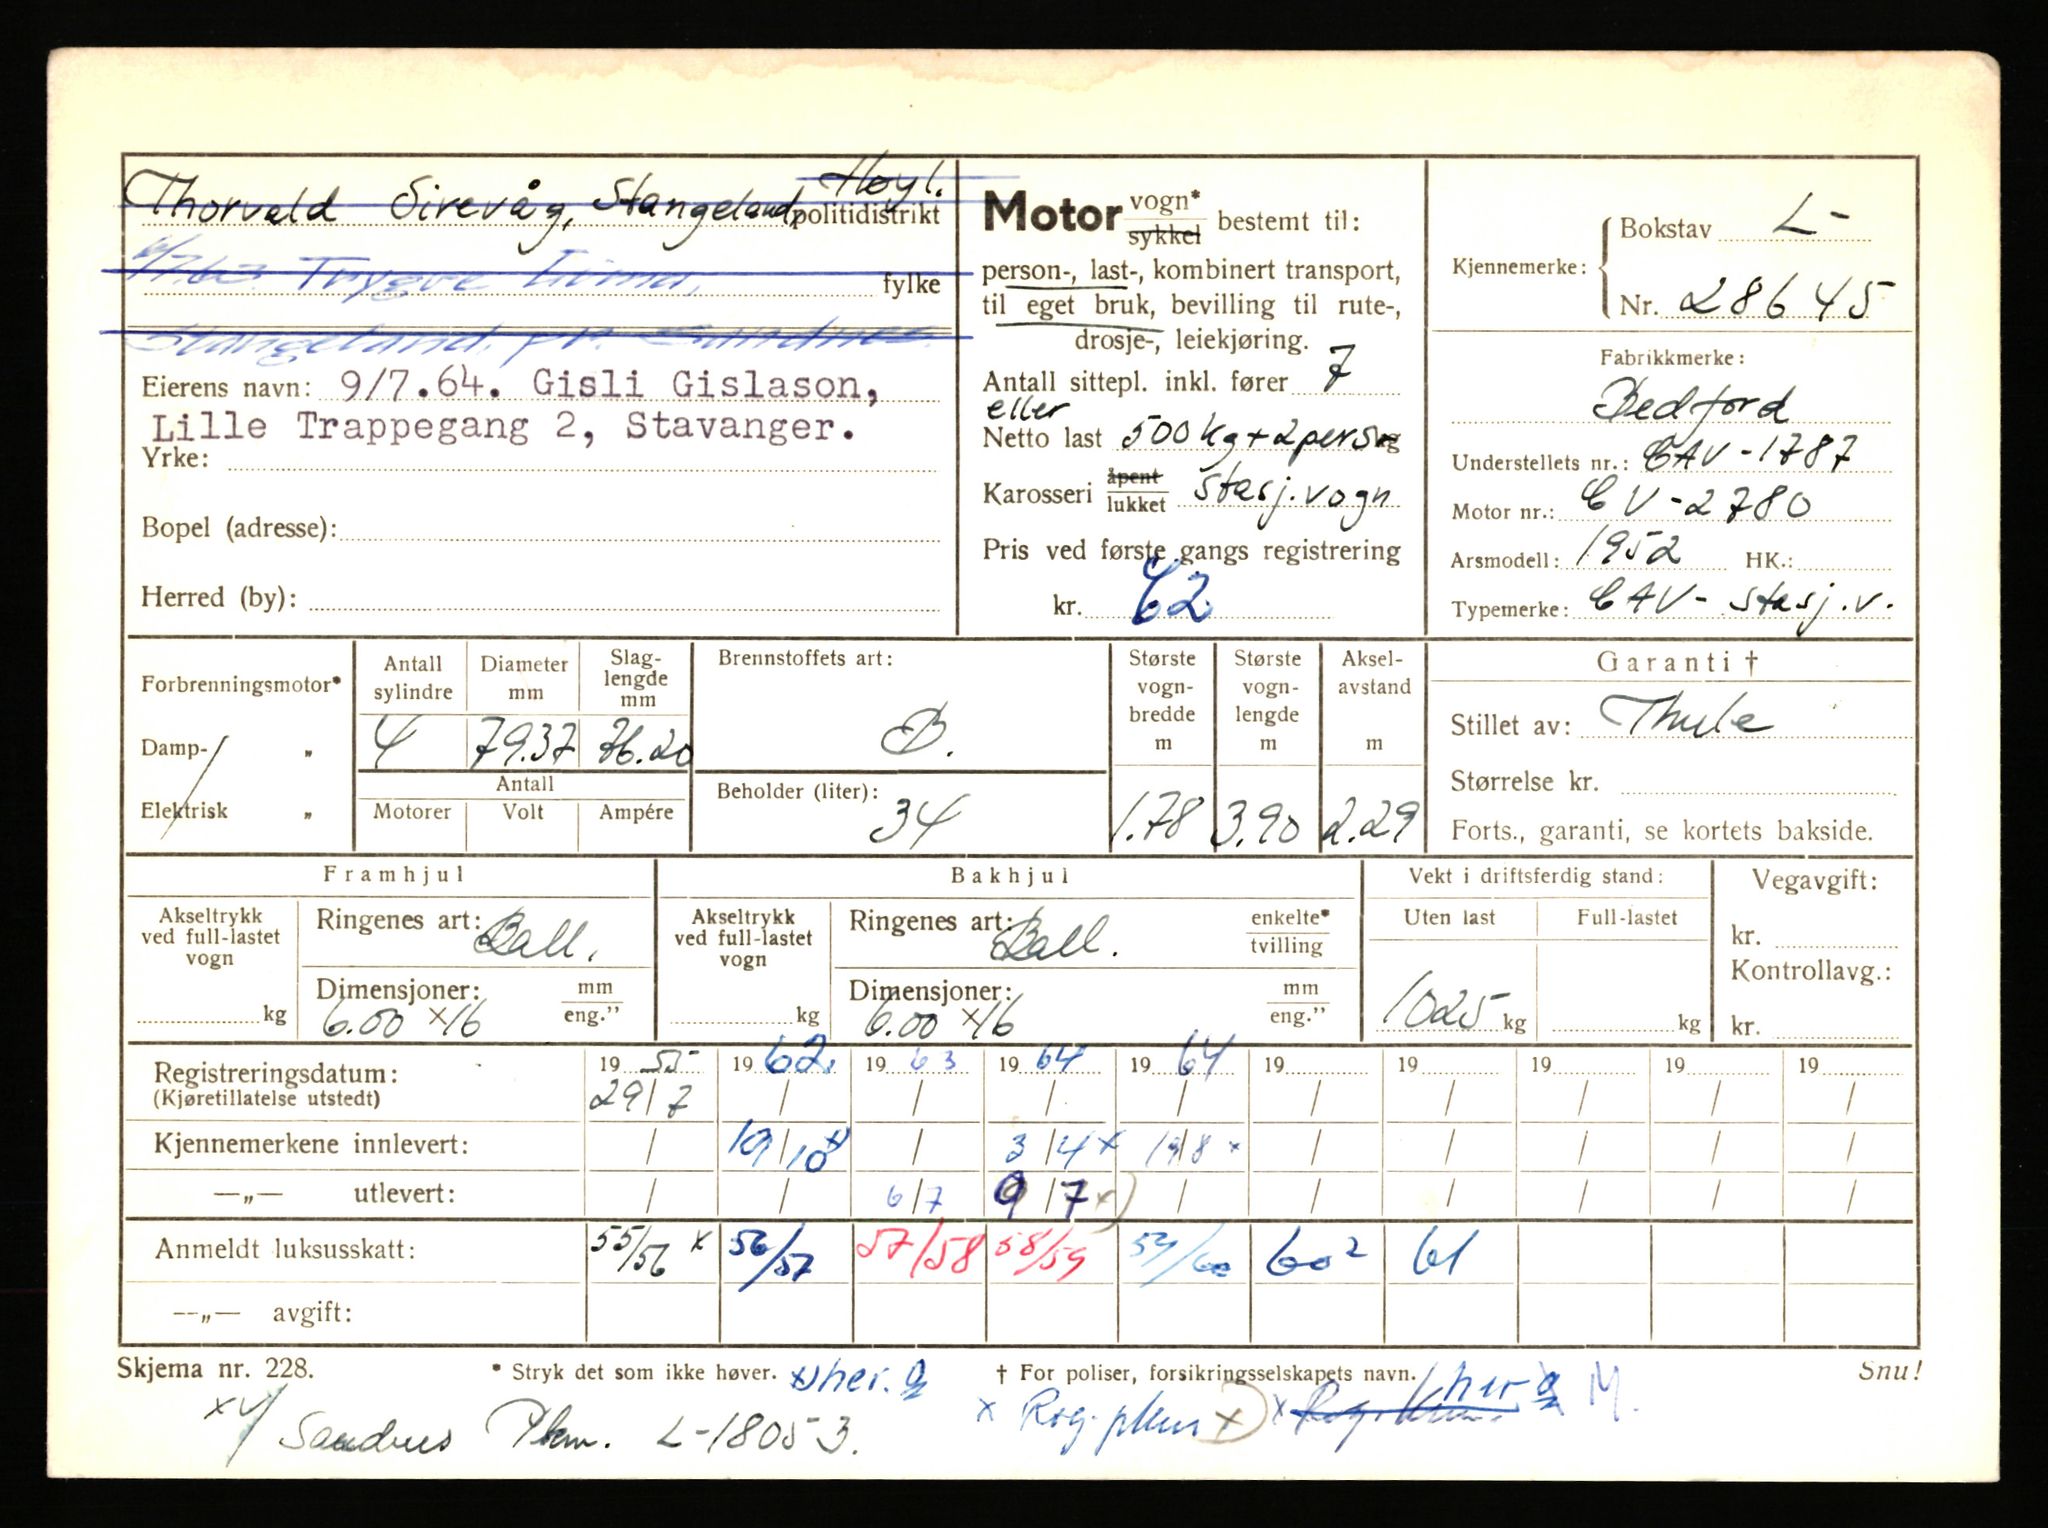 Thorvald Sirevåg, Stangeland, Høyl. politidistrikt
6/7.63 Trygve Lima, fylke
Stangeland, pr. Sandnes.
Eierens navn: 9/7.64. Gisli Gislason,
Lille Trappegang 2, Stavanger.
Yrke:
Bopel (adresse):
Herred (by):
Motor vogn* sykkel bestemt til:
person-, last-, kombinert transport,
til eget bruk, bevilling til rute-,
drosje-, leiekjøring.
Antall sittepl. inkl. fører 7
eller
Netto last 500 kg + 2 pers kg
Karosseri åpent lukket stasj.vogn
Pris ved første gangs registrering
kr. 62.
Kjennemerke: Bokstav L-
Nr. 28645
Fabrikkmerke:
Bedford
Understellets nr.: CAV-1787
Motor nr.: CV-2780
Arsmodell: 1952 HK.:
Typemerke: CAV- stasj.v.
Forbrenningsmotor*
Damp- „
Elektrisk „
Antall sylindre Diameter mm Slag-lengde mm
4 79.37 76.20
Antall
Motorer Volt Ampére
Brennstoffets art:
B.
Beholder (liter):
34
Største vogn-bredde m Største vogn-lengde m Aksel-avstand m
1.78 3.90 2.29
Garanti †
Stillet av: Thule
Størrelse kr.
Forts., garanti, se kortets bakside.
Framhjul
Akseltrykk ved full-lastet vogn
kg
Ringenes art: Ball.
Dimensjoner: mm eng.”
6.00 x 16
Bakhjul
Akseltrykk ved full-lastet vogn
kg
Ringenes art: Ball. enkelte* tvilling
Dimensjoner: mm eng.”
6.00 x 16
Vekt i driftsferdig stand:
Uten last Full-lastet
1025 kg kg
Vegavgift:
kr.
Kontrollavg.:
kr.
Registreringsdatum: 19 55 19 62. 19 63 19 64 19 64 19 19 19 19 19
(Kjøretillatelse utstedt) 29/7 / / / / / / / / /
Kjennemerkene innlevert: / 19/10 x / 3/4 x 19/8 x / / / / /
—„— utlevert: / / 6/7 9/7 x) / / / / / /
Anmeldt luksusskatt: 55/56 x 56/57 57/58 58/59 59/60 60² 61
—„— avgift:
Skjema nr. 228. * Stryk det som ikke høver. x) her. g † For poliser, forsikringsselskapets navn. her g M. Snu!
x Rog. x) x
x 4/ Sandnes Pkm. L-18053.